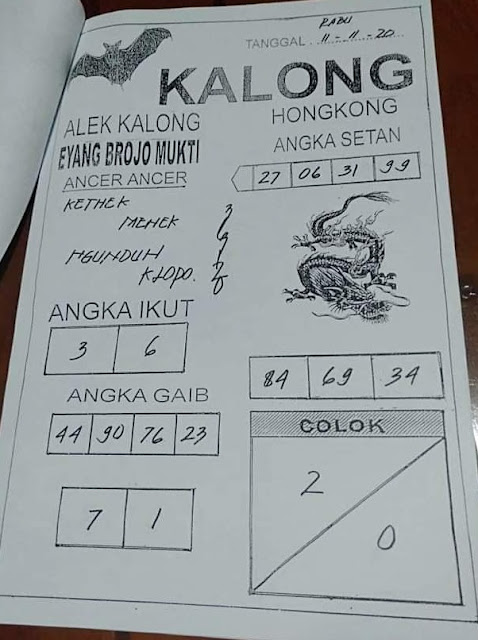 RABU
TANGGAL 11 - 11 - 20
KALONG
HONGKONG
ALEK KALONG
EYANG BROJO MUKTI
ANCER ANCER
ANGKA SETAN
27 06 31 99
KETHEK
MENEK
NGUNDUH
KLOPO.
ANGKA IKUT
3 6
84 69 34
ANGKA GAIB
44 90 76 23
7 1
COLOK
2
0